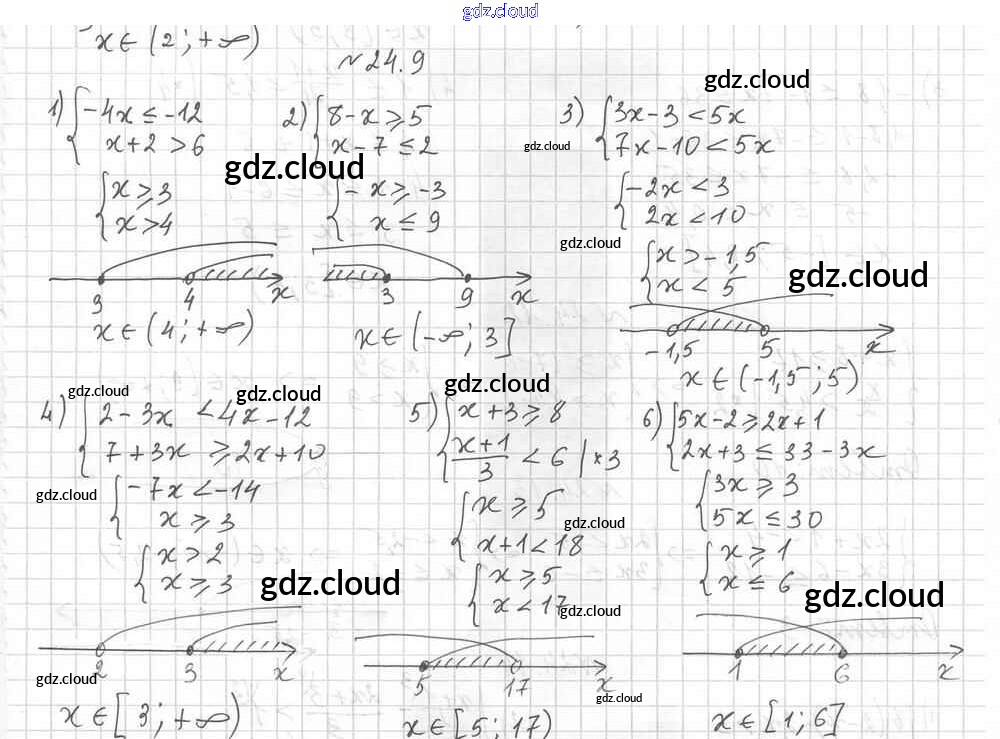 gdz.cloud
x∈(2;+∞)
№24.9
gdz.cloud
1) { -4x ≤ -12
x+2 > 6
{ x ≥ 3
x > 4
3 4 x
x∈(4;+∞)
2) { 8-x ≥ 5
x-7 ≤ 2
gdz.cloud
{ -x ≥ -3
x ≤ 9
3 9 x
x∈(-∞;3]
3) { 3x-3 < 5x
7x-10 < 5x
gdz.cloud
{ -2x < 3
2x < 10
gdz.cloud
{ x > -1,5
x < 5
gdz.cloud
-1,5 5 x
x∈(-1,5;5)
gdz.cloud
gdz.cloud
4) { 2-3x < 4x-12
7+3x ≥ 2x+10
gdz.cloud
{ -7x < -14
x ≥ 3
{ x > 2
x ≥ 3
gdz.cloud
2 3 x
gdz.cloud
x∈[3;+∞)
gdz.cloud
5) { x+3 ≥ 8
x+1/3 < 6 |*3
{ x ≥ 5
x+1 < 18
gdz.cloud
{ x ≥ 5
x < 17
gdz.cloud
5 17 x
gdz.cloud
x∈[5;17)
6) { 5x-2 ≥ 2x+1
2x+3 ≤ 33-3x
{ 3x ≥ 3
5x ≤ 30
{ x ≥ 1
x ≤ 6
gdz.cloud
1 6 x
x∈[1;6]